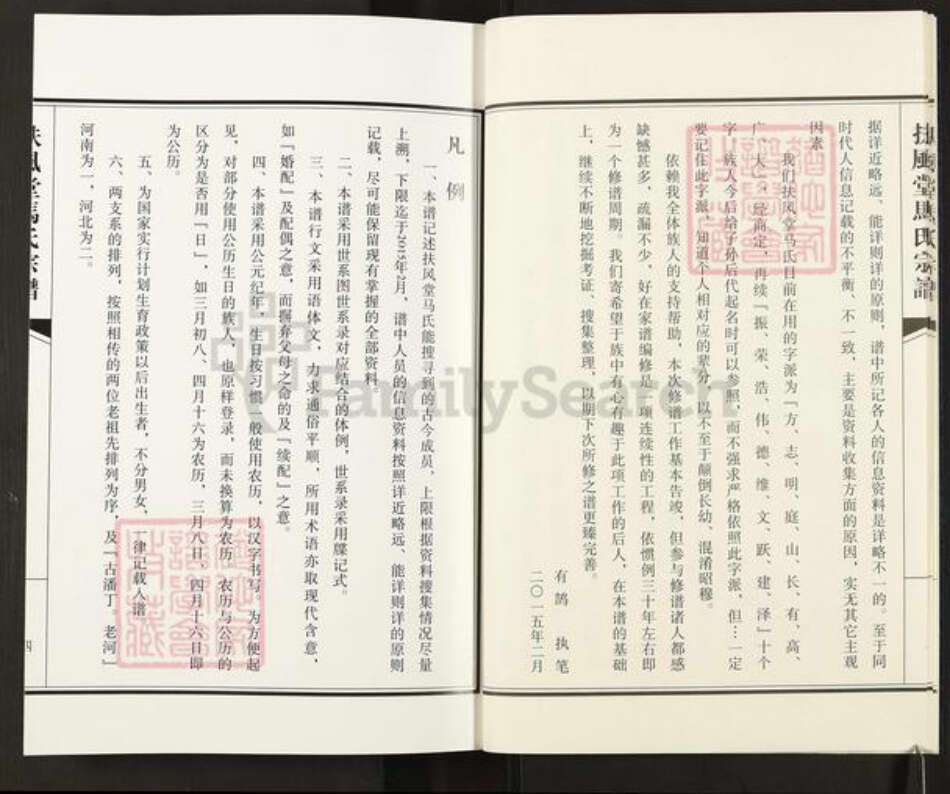 据详近略远、能详则详的原则，谱中所记各人的信息资料是详略不一的。至于同
时代人信息记载的不平衡、不一致，主要是资料收集方面的原因，实无其它主观
因素
我们扶风堂马氏目前在用的字派为“方、志、明、庭、山、长、有、高、
广、大”。经商定，再续“振、荣、浩、伟、德、维、文、跃、建、泽”十个
字，族人今后给子孙后代起名时可以参照，而不强求严格依照此字派，但…一定
要记住此字派，知道个人相对应的辈分，以不至于颠倒长幼、混淆昭穆。
依赖我全体族人的支持帮助，本次修谱工作基本告竣，但参与修谱诸人都感
缺憾甚多，疏漏不少，好在家谱编修是一项连续性的工程，依惯例三十年左右即
为一个修谱周期。我们寄希望于族中有心有趣于此项工作的后人，在本谱的基础
上，继续不断地挖掘考证、搜集整理，以期下次所修之谱更臻完善。
有鹄 执笔
二〇一五年二月
扶风堂马氏宗谱
凡例
一、本谱记述扶风堂马氏能搜寻到的古今成员，上限根据资料搜集情况尽量
上溯，下限迄于2015年2月，谱中人员的信息资料按照详近略远、能详则详的原则
记载，尽可能保留现有掌握的全部资料。
二、本谱采用世系图世系录对应结合的体例，世系录采用牒记式。
三、本谱行文采用语体文，力求通俗平顺，所用术语亦取现代含意，
如“婚配”及配偶之意，而摒弃父母之命的及“续配”之意。
四、本谱采用公元纪年，生日按习惯一般使用农历，以汉字书写。为方便起
见，对部分使用公历生日的族人，也原样登录，而未换算为农历，农历与公历的
区分为是否用“日”，如三月初八、四月十六为农历，三月八日、四月十六日即
为公历。
五、为国家实行计划生育政策以后出生者，不分男女，一律记载入谱
六、两支系的排列，按照相传的两位老祖先排列为序，及“古潘丁。老河”
河南为一，河北为二。
扶风堂马氏宗谱
四
FamilySearch